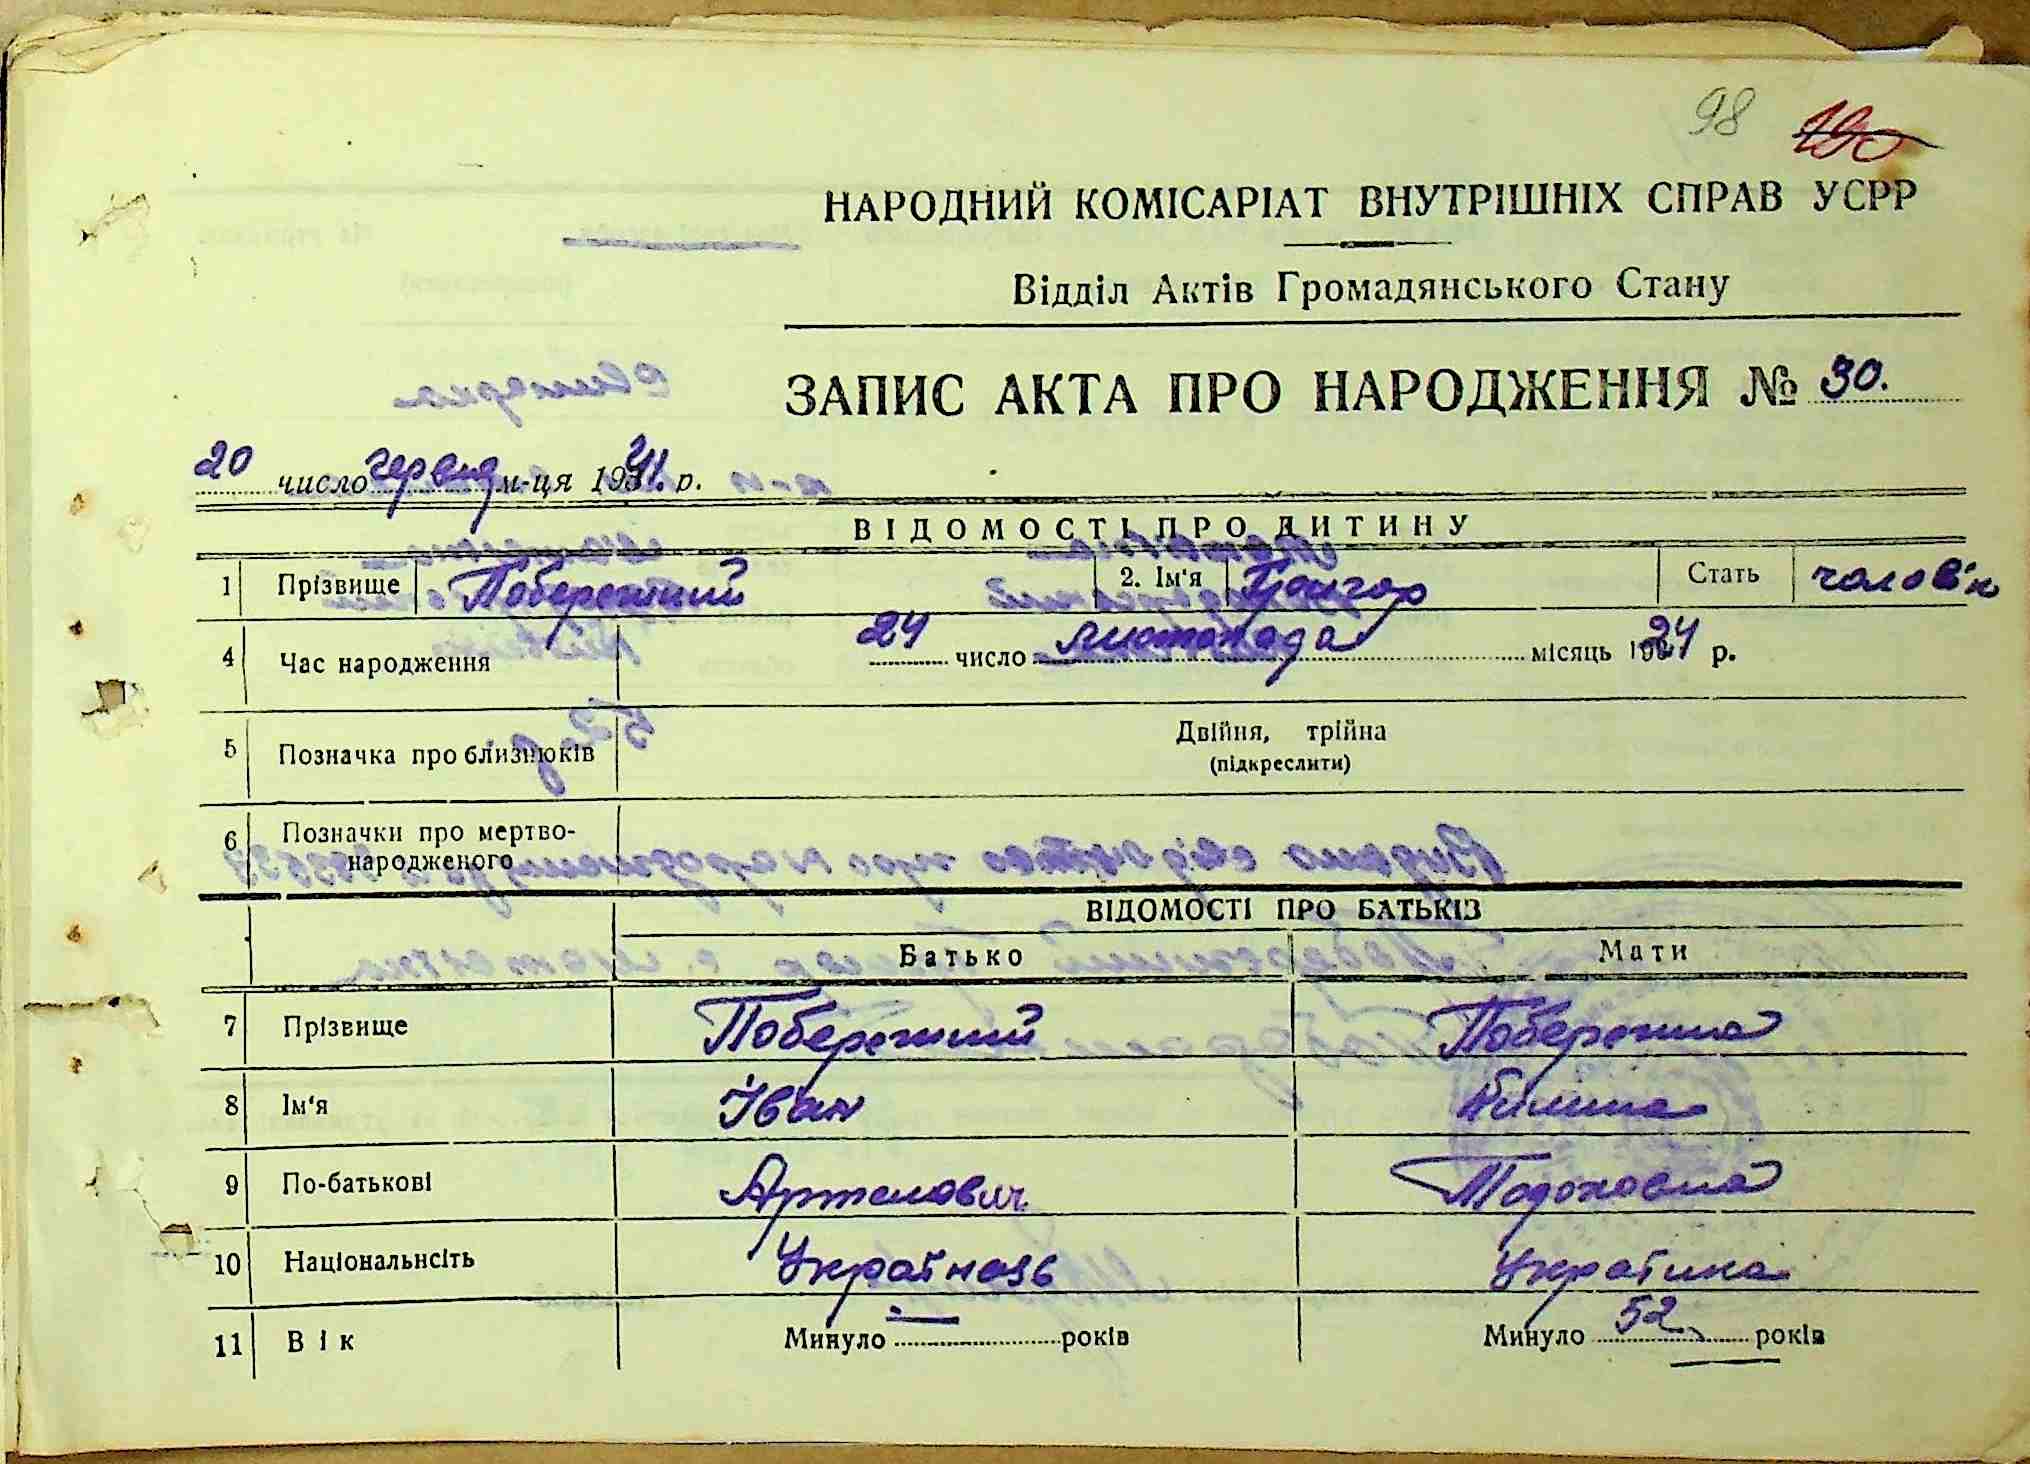 98 190
НАРОДНИЙ КОМІСАРІАТ ВНУТРІШНІХ СПРАВ УСРР
Відділ Актів Громадянського Стану
ЗАПИС АКТА ПРО НАРОДЖЕННЯ № 30.
20 число червня м-ця 1941. р.
ВІДОМОСТІ ПРО ДИТИНУ
1 Прізвище Побережний 2. Ім'я Григор Стать чоловік
4 Час народження 24 число листопада місяць 1924 р.
5 Позначка про близнюків Двійня, трійна
(підкреслити)
6 Позначки про мертво-
народженого
ВІДОМОСТІ ПРО БАТЬКІВ
Батько Мати
7 Прізвище Побережний Побережна
8 Ім'я Іван
9 По-батькові Артемович
10 Національнсіть Українець Українка
11 Вік Минуло — років Минуло 52 років